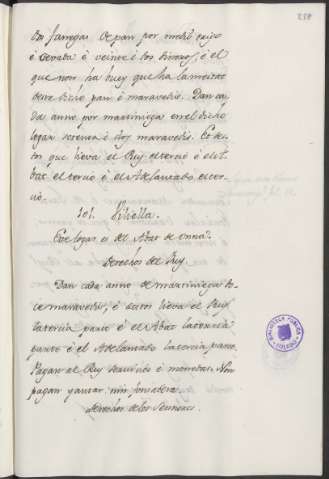 258
dos fanegas de pan por medio trigo
è cevada è veinte è dos dineros, è el
que non ha buey que ha la meitat
deste dicho pan è maravedis. Dan ca-
da anno por martiniega en el dicho
logar sesenta è dos maravedis. Et des-
tos que lieva el Rey el tercio è el A-
bat el tercio è el Adelantado el ter-
cio.
101. Vilella.
Este logar es del Abat de Onna.
Derechos del Rey.
Dan cada anno de martiniega do-
ce maravedis, è destos lieva el Rey
la tercia parte è el Abat la tercia
parte è el Adelantado la tercia parte.
Pagan al Rey servicios è monedas. Non
pagan yantar nin fonsadera.
Derechos de los Sennores.
BIBLIOTECA PUBLICA
TOLEDO